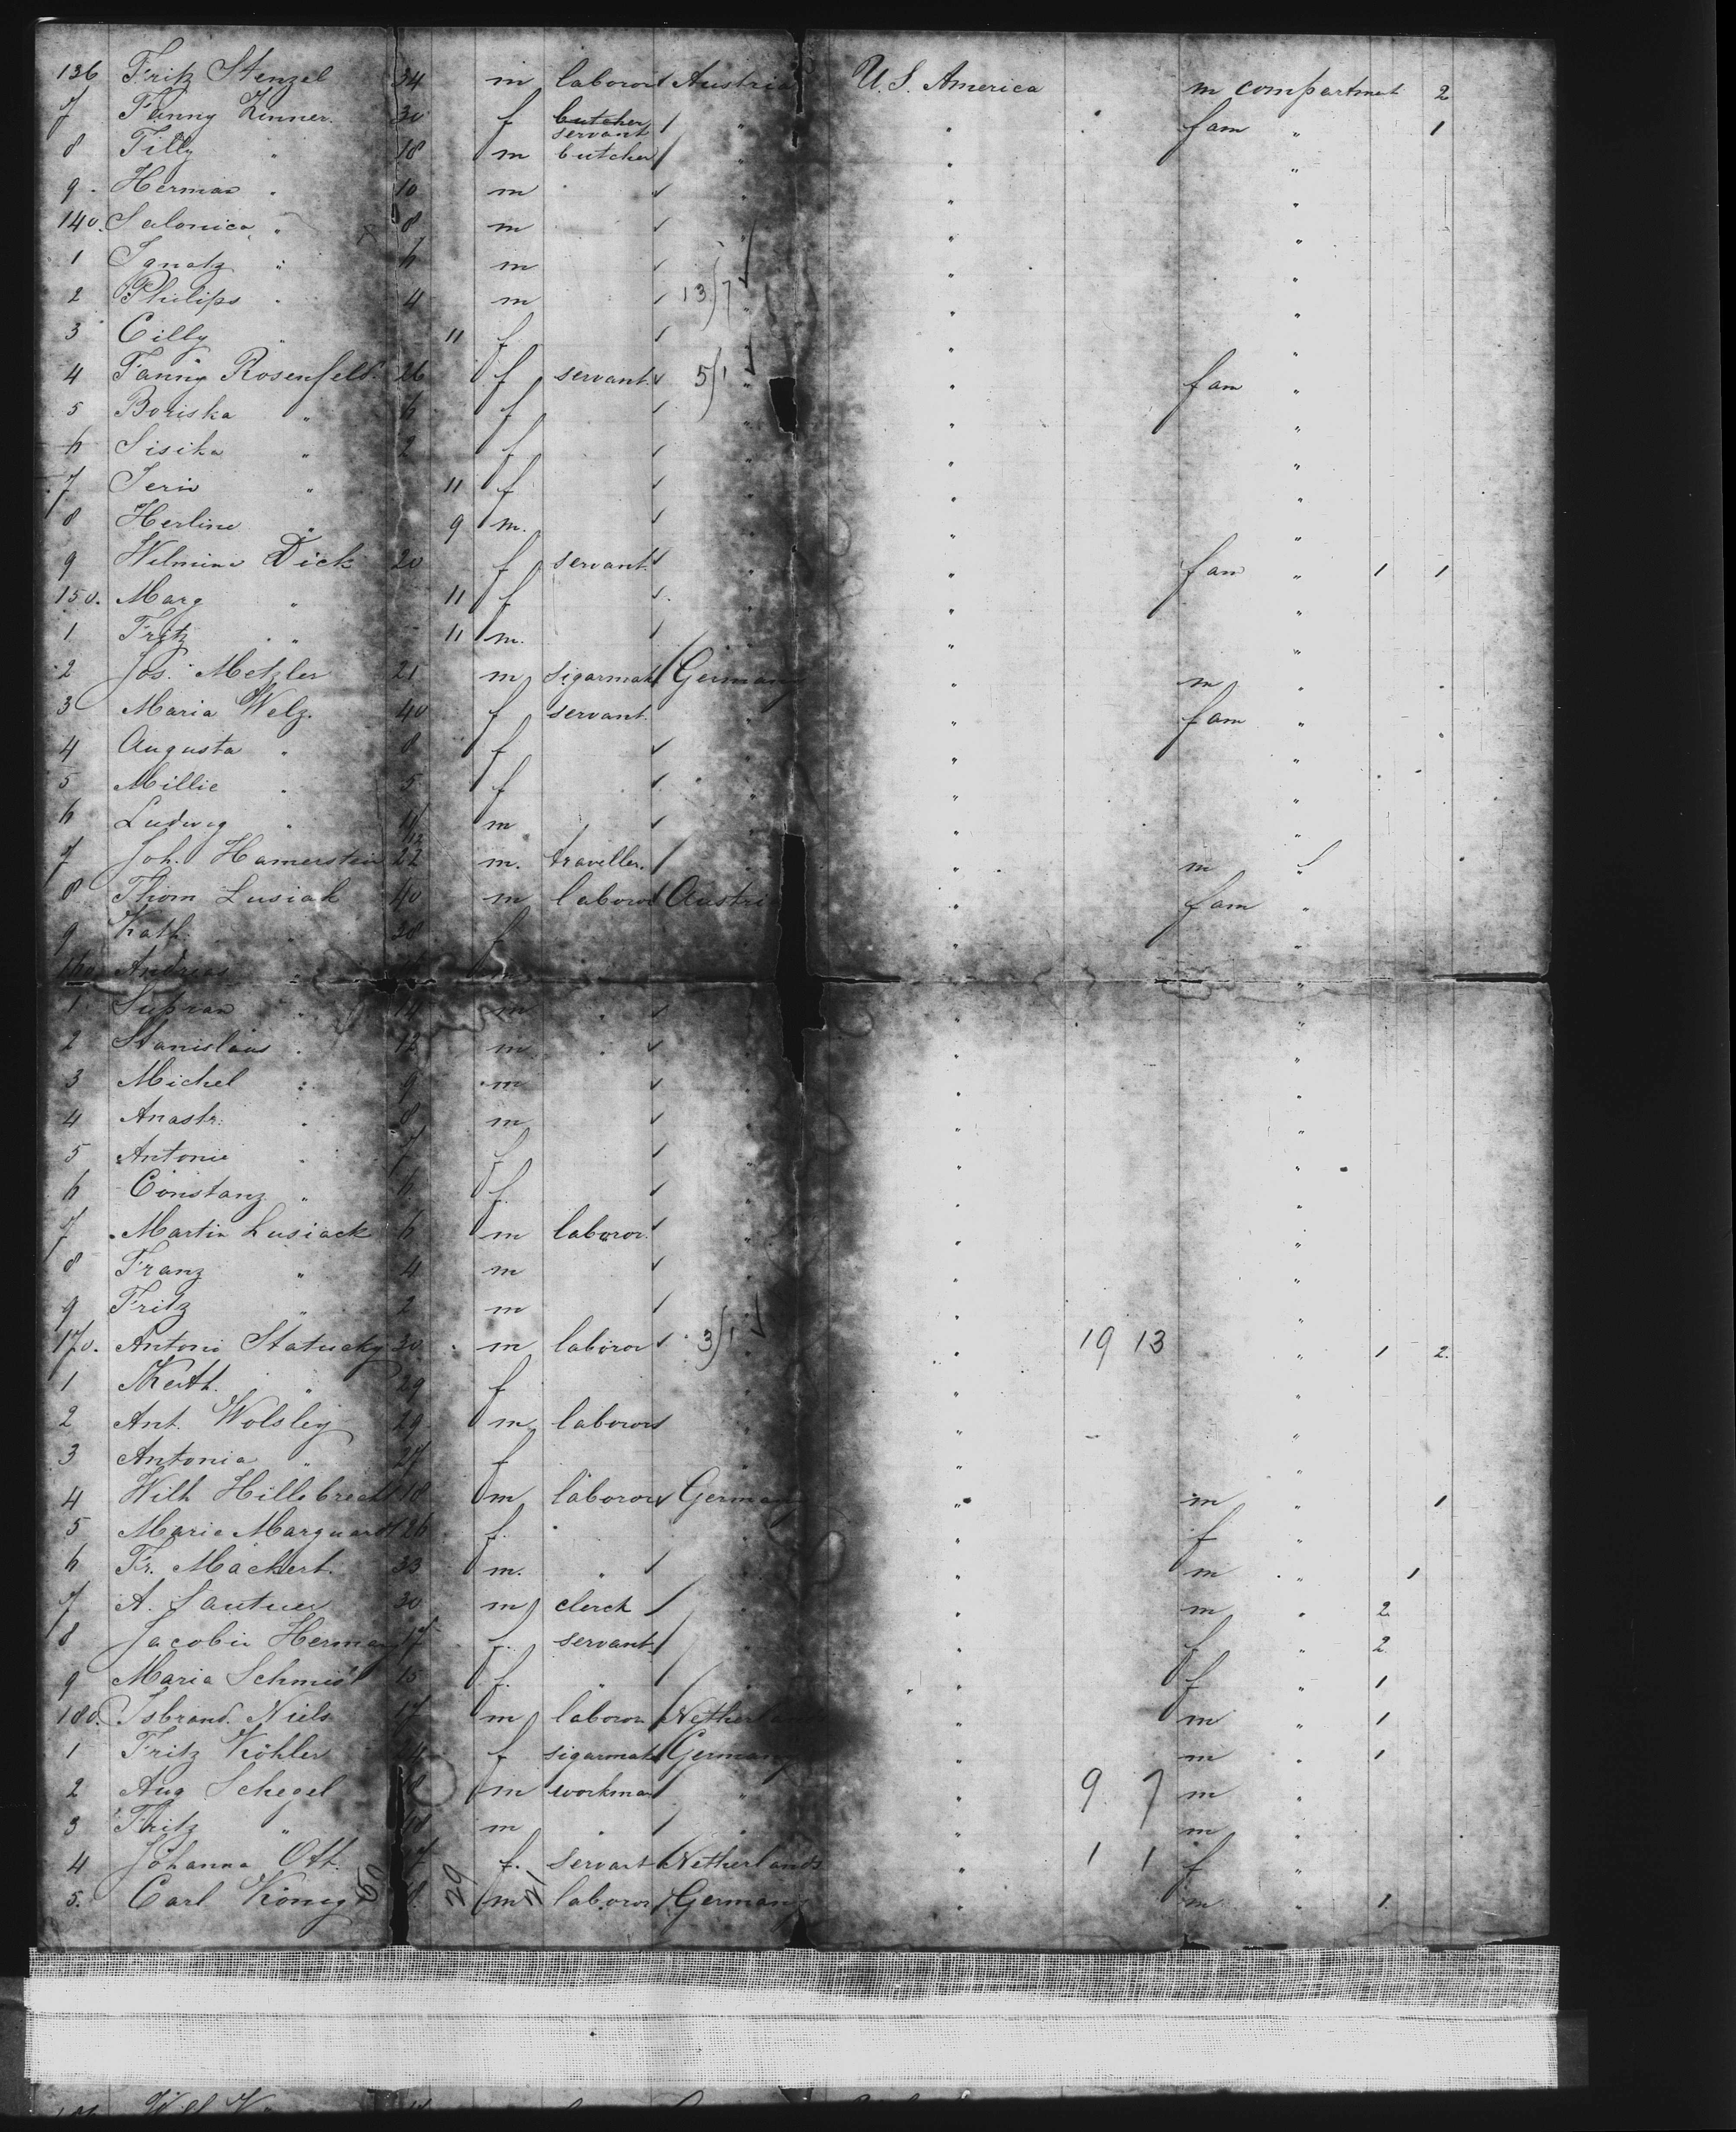 136 Fritz Stenzel 34 m laborer Austria U. S. America m compartment 2
7 Fanny Zinner 30 f butcher servant " " fam " 1
8 Tilly " 18 m butcher " " "
9 Herman " 10 m " " "
140. Salonica " 8 m " " "
1 Ignatz " 6 m " " "
2 Philips " 4 m 13/7 " " "
3 Cilly " 11 f " "
4 Fanny Rosenfeld 26 f servant 5/1 " " fam "
5 Boriska " 6 f " " "
6 Sisika " 2 f " " "
7 Serin " 11 f " " "
8 Herline " 9 m. " " "
9 Wilmina Dick 20 f servant " " fam " 1 1
150. Marg " 11 f " " "
1 Fritz " 11 m. " " "
2 Jos. Metzler 21 m sigarmak Germany " m "
3 Maria Welz. 40 f servant. " " fam "
4 Augusta " 8 f " " "
5 Millie " 5 f " " "
6 Ludwig " 11/12 m " " "
7 Joh. Hamerstein 22 m. traveller. " m "
8 Thom Lusiak 40 m laboror Austria " fam "
9 Kath. " 28 f " "
160 Andreas " m "
1 " 14 m " " "
2 Stanislaus " 12 m " " "
3 Michel " 9 m " " "
4 Anastr. " 8 m " " "
5 Antonie " 7 f " " "
6 Constanz " 6 f. " " "
7 Martin Lusiack 6 m laboror. " " "
8 Franz " 4 m " " "
9 Fritz " 2 m " " "
170. Antoni Statucky 30 m laboror 3/1 " 19 13 " 1 2.
1 Kath. " 29 f " " "
2 Ant. Wolsley 29 m laboror " " "
3 Antonia " 27 f " " "
4 Wilh Hillebrecht 18 m laboror Germany " m " 1
5 Marie Marguardt 26 f. " " f "
6 Fr. Mackert. 33 m. " " m " 1
7 A. Lautner 30 m clerck " m " 2
8 Jacobir Herman 17 f. servant " f " 2
9 Maria Schmidt 15 f. " " f " 1
180. Isbrand. Niels 17 m laboror Netherlands " m " 1
1 Fritz Köhler 24 f sigarmak Germany " m " 1
2 Aug Schegel m workman " " 9 7 m "
3 Fritz " m " " " m "
4 Johanna Ott. f. servant Netherlands " 1 1 f "
5. Carl König 50 29 m 21 laboror Germany " m " 1.